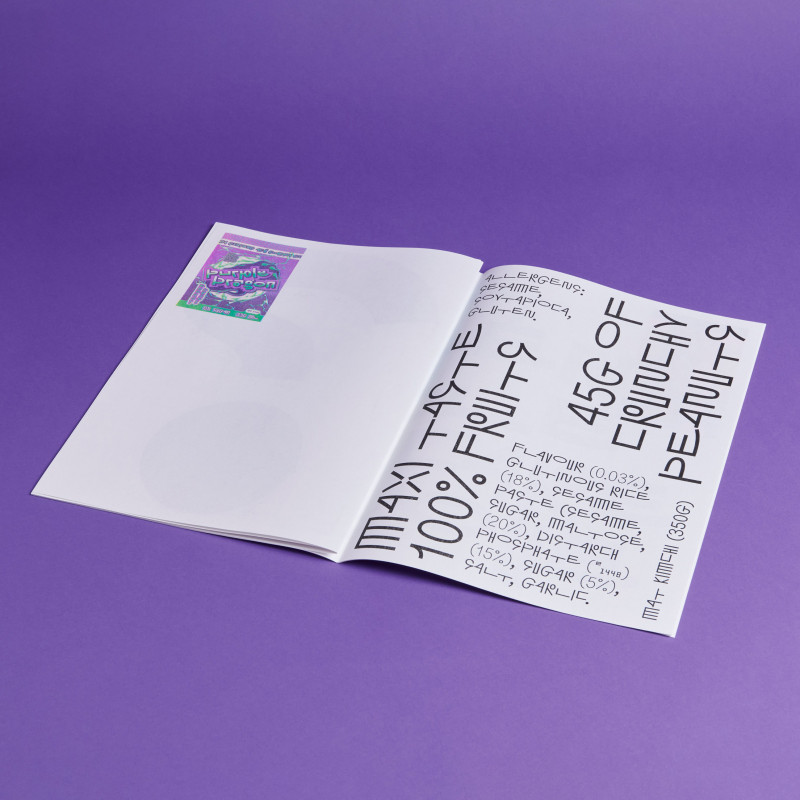 purple
dragon
ALLERGENS:
SESAME,
SOYTAPIOCA,
GLUTEN.
MAXI TASTE
100% FRUITS
45G OF
CRUNCHY
PEANUTS
FLAVOUR (0.03%),
GLUTINOUS RICE
(18%), SESAME
PASTE (SESAME,
SUGAR, MALTOSE,
(20%), DISTARCH
PHOSPHATE (E1448)
(15%), SUGAR (5%),
SALT, GARLIC.
MAT KIMCHI (350G)